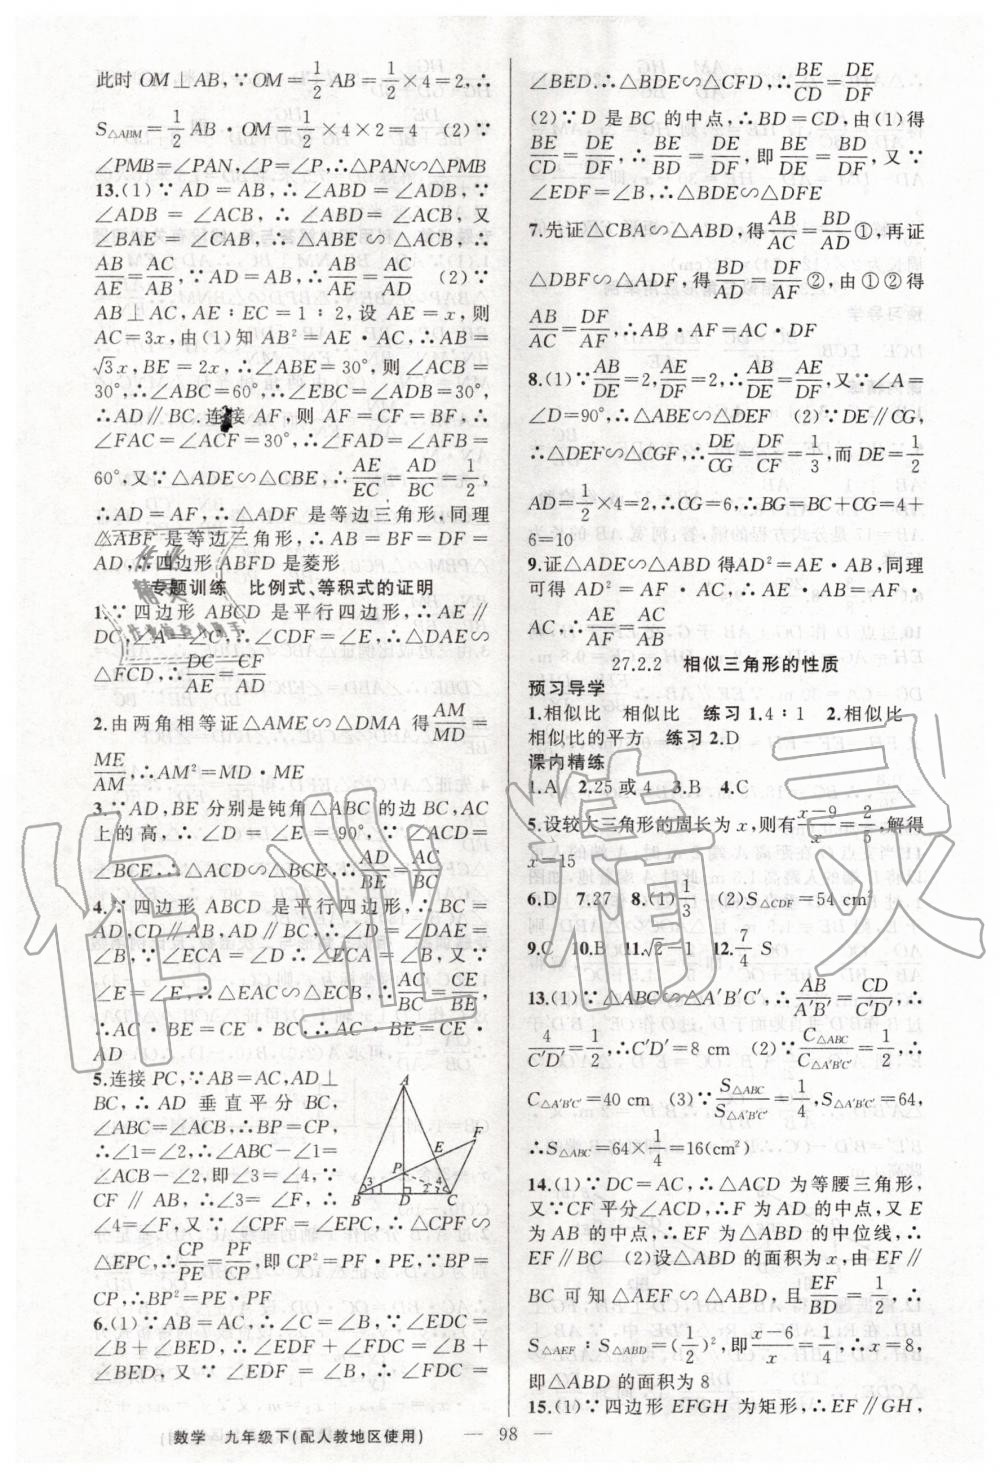 此时 OM⊥AB,∵OM=1/2 AB=1/2×4=2,∴
S△ABM=1/2 AB·OM=1/2×4×2=4 (2)∵
∠PMB=∠PAN,∠P=∠P,∴△PAN∽△PMB
13.(1)∵AD=AB,∴∠ABD=∠ADB,∵
∠ADB=∠ACB,∴∠ABD=∠ACB,又
∠BAE=∠CAB,∴△ABE∽△ACB,∴
AB/AE=AC/AB,∵AD=AB,∴AB/AE=AC/AD (2)∵
AB⊥AC,AE∶EC=1∶2,设 AE=x,则
AC=3x,由(1)知 AB²=AE·AC,∴AB=
√3x,BE=2x,∴∠ABE=30°,则∠ACB=
30°,∴∠ABC=60°,∴∠EBC=∠ADB=30°,
∴AD∥BC.连接 AF,则 AF=CF=BF,∴
∠FAC=∠ACF=30°,∴∠FAD=∠AFB=
60°,又∵△ADE∽△CBE,∴AE/EC=AD/BC=1/2,
∴AD=AF,∴△ADF 是等边三角形,同理
△ABF 是等边三角形,∴AB=BF=DF=
AD,∴四边形 ABFD 是菱形
专题训练 比例式、等积式的证明
1.∵四边形 ABCD 是平行四边形,∴AE∥
DC,∠A=∠C,∴∠CDF=∠E,∴△DAE∽
△FCD,∴DC/AE=CF/AD
2.由两角相等证△AME∽△DMA 得AM/MD=
ME/AM,∴AM²=MD·ME
3.∵AD,BE 分别是钝角△ABC 的边 BC,AC
上的高,∴∠D=∠E=90°,∵∠ACD=
∠BCE∴△ACD∽△BCE∴AD/BE=AC/BC
4.∵四边形 ABCD 是平行四边形,∴BC=
AD,CD∥AB,AD∥BC,∴∠D=∠DAE=
∠B,∵∠ECA=∠D∴∠ECA=∠B,∵
∠E=∠E,∴△EAC∽△ECB,∴AC/BC=CE/BE,
∴AC·BE=CE·BC,∴AC·BE=CE·
AD
5.连接 PC,∵AB=AC,AD⊥
BC,∴AD 垂直平分 BC,
∠ABC=∠ACB,∴BP=CP,
∴∠1=∠2,∴∠ABC-∠1=
∠ACB-∠2,即∠3=∠4,∵
CF∥AB,∴∠3=∠F,∴
∠4=∠F,又∵∠CPF=∠EPC,∴△CPF∽
△EPC,∴CP/PE=PF/CP,即 CP²=PF·PE,∵BP=
CP,∴BP²=PE·PF
6.(1)∵AB=AC,∴∠C=∠B,∵∠EDF
+∠BED,∴∠EDF+∠FDC=∠B+
∠BED,又∵∠EDF=∠B,∴∠FDC=
A
F
P
E
B
D
C
3
1
2
4
∠BED.∴△BDE∽△CFD,∴BE/CD=DE/DF
(2)∵D 是 BC 的中点,∴BD=CD,由(1)得
BE/CD=DE/DF,∴BE/BD=DE/DF,即BE/DE=BD/DF,又∵
∠EDF=∠B,∴△BDE∽△DFE
7.先证△CBA∽△ABD,得AB/AC=BD/AD①,再证
△DBF∽△ADF,得BD/AD=DF/AF②,由①②得
AB/AC=DF/AF,∴AB·AF=AC·DF
8.(1)∵AB/DE=2/1=2,∴AB/DE=AE/DF=2.又∵∠A=
∠D=90°,∴△ABE∽△DEF (2)∵DE∥CG,
∴△DEF∽△CGF,∴DE/CG=DF/CF=1/3,而 DE=1/2
AD=1/2×4=2,∴CG=6,∴BG=BC+CG=4+
6=10
9.证△ADE∽△ABD,得 AD²=AE·AB,同理
可得 AD²=AF·AC,∴AE·AB=AF·
AC,∴AE/AF=AC/AB
27.2.2 相似三角形的性质
预习导学
1.相似比 相似比 练习 1.4∶1 2.相似比
相似比的平方 练习 2.D
课内精练
1.A 2.25 或 4 3.B 4.C
5.设较大三角形的周长为 x,则有(x-9)/x=2/5,解得
x=15
6.D 7.27 8.(1)1/3 (2)S△CDF=54 cm²
9.C 10.B 11.√2-1 12.7/4 S
13.(1)∵△ABC∽△A′B′C′,∴AB/A′B′=CD/C′D′,∴
4/C′D′=1/2,∴C′D′=8 cm (2)∵C△ABC/C△A′B′C′=1/2,∴
C△A′B′C′=40 cm (3)∵S△ABC/S△A′B′C′=1/4,S△A′B′C′=64,
∴S△ABC=64×1/4=16(cm²)
14.(1)∵DC=AC,∴△ACD 为等腰三角形,
又∵CF 平分∠ACD,∴F 为 AD 的中点,又 E
为 AB 的中点,∴EF 为△ABD 的中位线,∴
EF∥BC (2)设△ABD 的面积为 x,由 EF∥
BC 可知△AEF∽△ABD,且EF/BD=1/2,∴
S△AEF∶S△ABD=(1/2)²,即(x-6)/x=1/4,∴x=8,
即△ABD 的面积为 8
15.(1)∵四边形 EFGH 为矩形,∴EF∥GH,
数学 九年级下(配人教地区使用) — 98 —
作业精灵